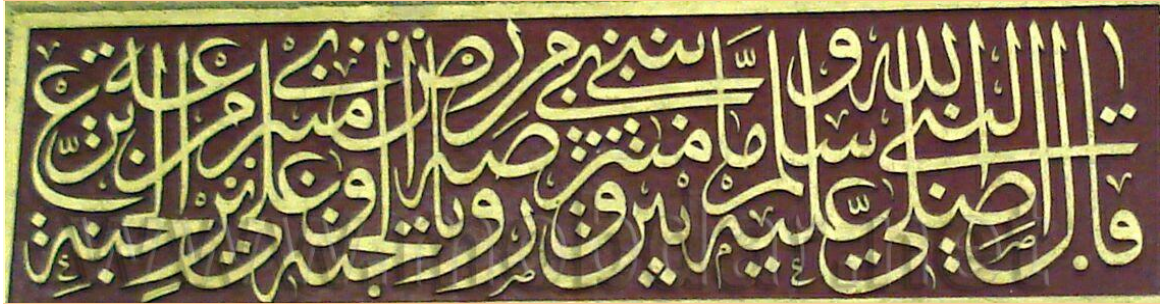 قال النبي صلى الله عليه وسلم ما بين بيتي ومنبري روضة من رياض الجنة ومنبري على ترعة من ترع الجنة